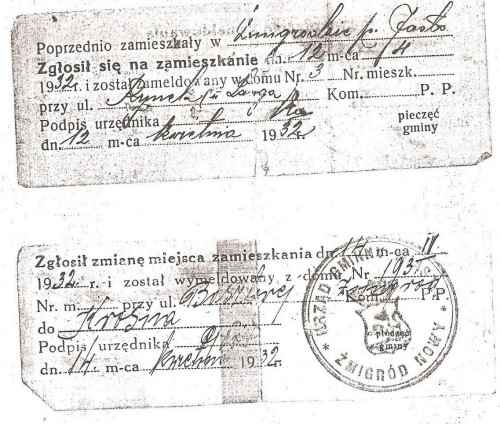 Poprzednio zamieszkały w Żmigrodzie p. Jasło
Zgłosił się na zamieszkanie dn. 12 m-ca 4
1932 r. i został zameldowany w domu Nr. 3 Nr. mieszk.
przy ul. Kom. P. P.
Podpis urzędnika pieczęć
dn. 12 m-ca kwietnia 1932 r. gminy
Zgłosił zmianę miejsca zamieszkania dn. 14 m-ca
1932 r. i został wymeldowany z domu Nr 193
Nr. m. przy ul. Kom. P.P.
do Krosna
Podpis urzędnika
dn. 14 m-ca 1932 r.
URZĄD GMINNY
ŻMIGRÓD NOWY
gminy